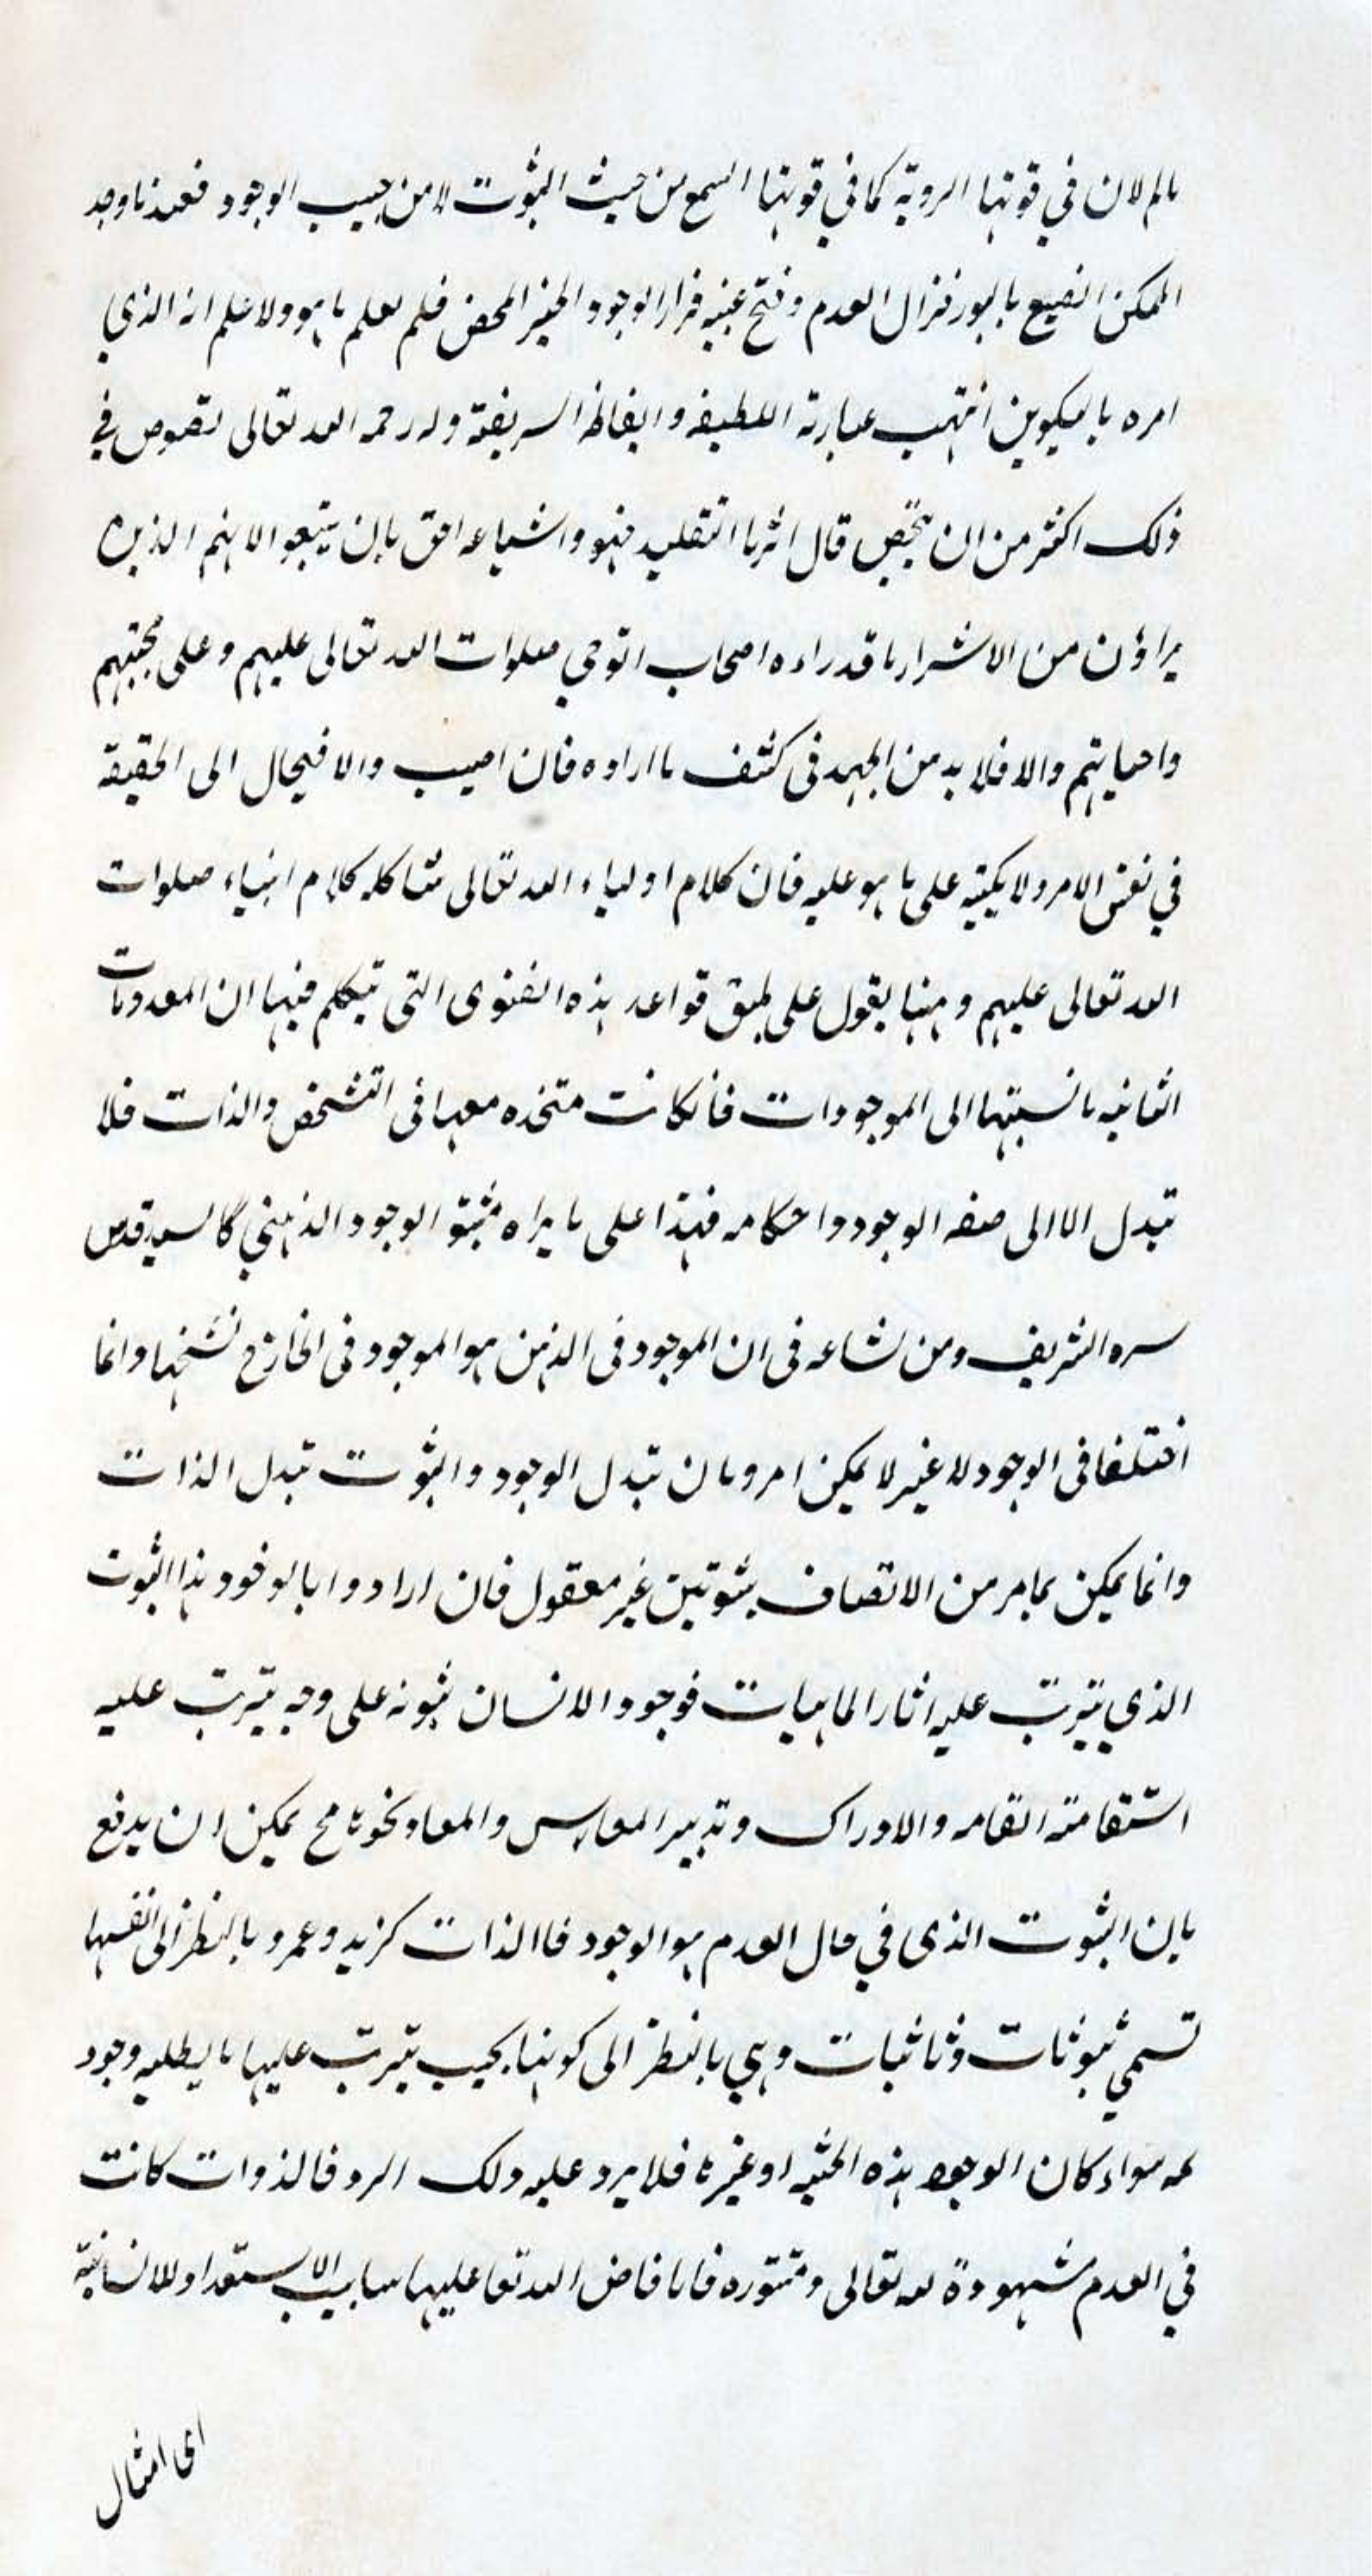 بالم لان في قوتها الروية كما في قوتها السمع من حيث الثبوت لا من حيب الوجود فعندنا وجد
الممكن انصبع بالنور فزال العدم وفتح عينيه فراى الوجود الخير المحض فلم يعلم ما هو ولا علم انه الذي
امره بالتكوين انتهت عبارته اللطيفه والفاظه الشريفة وله رحمه الله تعالى نصوص في
ذلك اكثر من ان تحصى قال اثرنا التقليد فهو واشياعه احق بان يتبعوا لانهم الذين
يراؤن من الاسرار ما قد راءه اصحاب الوحي صلوات الله تعالى عليهم وعلى محبيهم
واصحابهم والا فلا بد من الجهد في كشف ما ارادوه فان اصيب والا فيحال الى الحقيقة
في نفس الامر ولا يكيته على ما هو عليه فان كلام اولياء الله تعالى شاكله كلام انبياء صلوات
الله تعالى عليهم وههنا يقول على طبق قواعد هذه الفتوى التي تتكلم فيها ان المعدومات
الثانيه بالنسبتها الى الموجودات فان كانت متحده معها في التشخص والذات فلا
تبدل الا الى صفه الوجود واحكامه فهذا على ما يراه مثبتو الوجود الذهني كالسيد قدس
سره الشريف ومن شاعه في ان الموجود في الذهن هو الموجود في الخارج تشخصها وانما
اختلفا في الوجود لا غير لا يمكن امر وبان تبدل الوجود والثبوت تبدل الذات
وانما يمكن بما مر من الاتصاف بثبوتين غير معقول فان ارادوا بالوجود هذا الثبوت
الذي يترتب عليه اثار الماهيات فوجود الانسان ثبوته على وجه يترتب عليه
استقامته القامه والادراك وتدبير المعاس والمعاد نحوها مح يمكن ان يدفع
بان الثبوت الذي في حال العدم هو الوجود فاالذات كزيد وعمرو بالنظر الى نفسها
تسمى ثبوتات وثابتات وهي بالنظر الى كونها بحيب يترتب عليها ما يطلبه وجود
له سواء كان الوجود هذه الحثيه او غيرها فلا يرد عليه ذلك الرد فالذوات كانت
في العدم مشهودة لله تعالى ومتقرره فلما افاض الله تعا عليها اسباب الاستعداد للانسانية
اى امثال